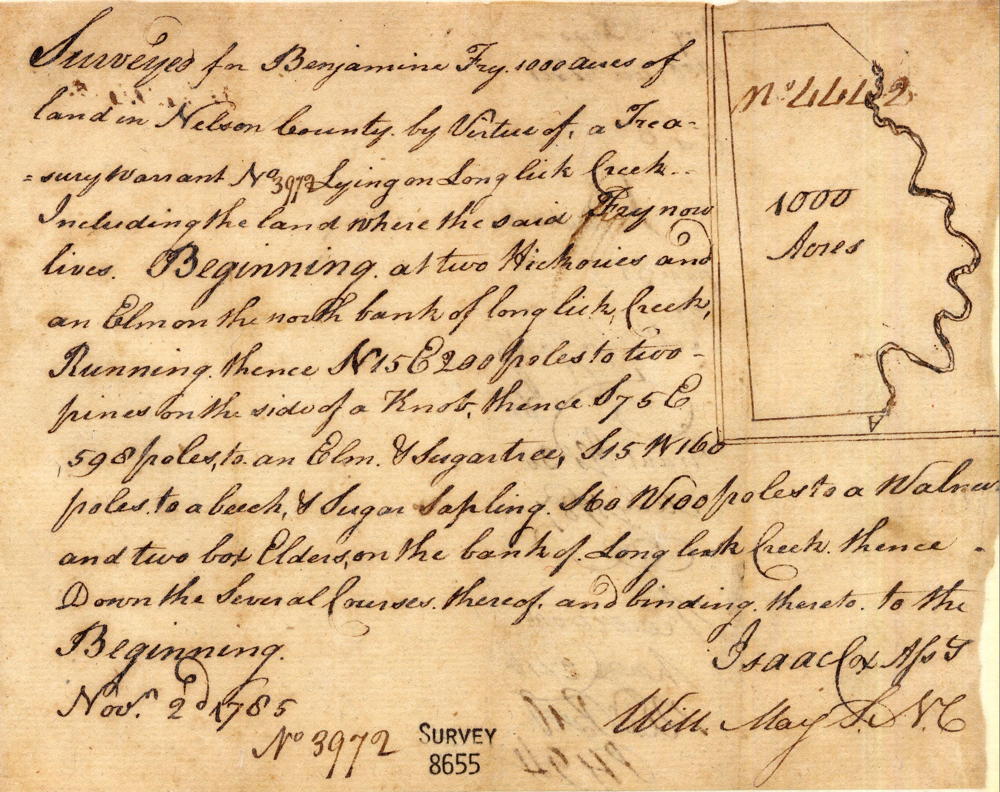 Surveyed for Benjamine Fry 1000 acres of
land in Nelson County by Virtue of, a Trea-
=sury warrant No 3972 Lying on Long lick Creek..
Including the land where the said Fry now
lives. Beginning at two Hickories and
an Elm on the north bank of long lick, Creek,
Running thence N15E 200 poles to two -
pines on the side of a Knob, thence S75E
598 poles, to an Elm. & Sugartree, S15W160
poles. to a beech, & Sugar Sapling. S60W100 poles to a Walnut
and two box Elders, on the bank of Long lick Creek. thence
Down the Several Courses. thereof. and binding. thereto. to the
Beginning.
Isaac Cox Asst
Novr. 2d 1785
Will. May S. N.C
No 3972
SURVEY
8655
No 4442
1000
Acres
A